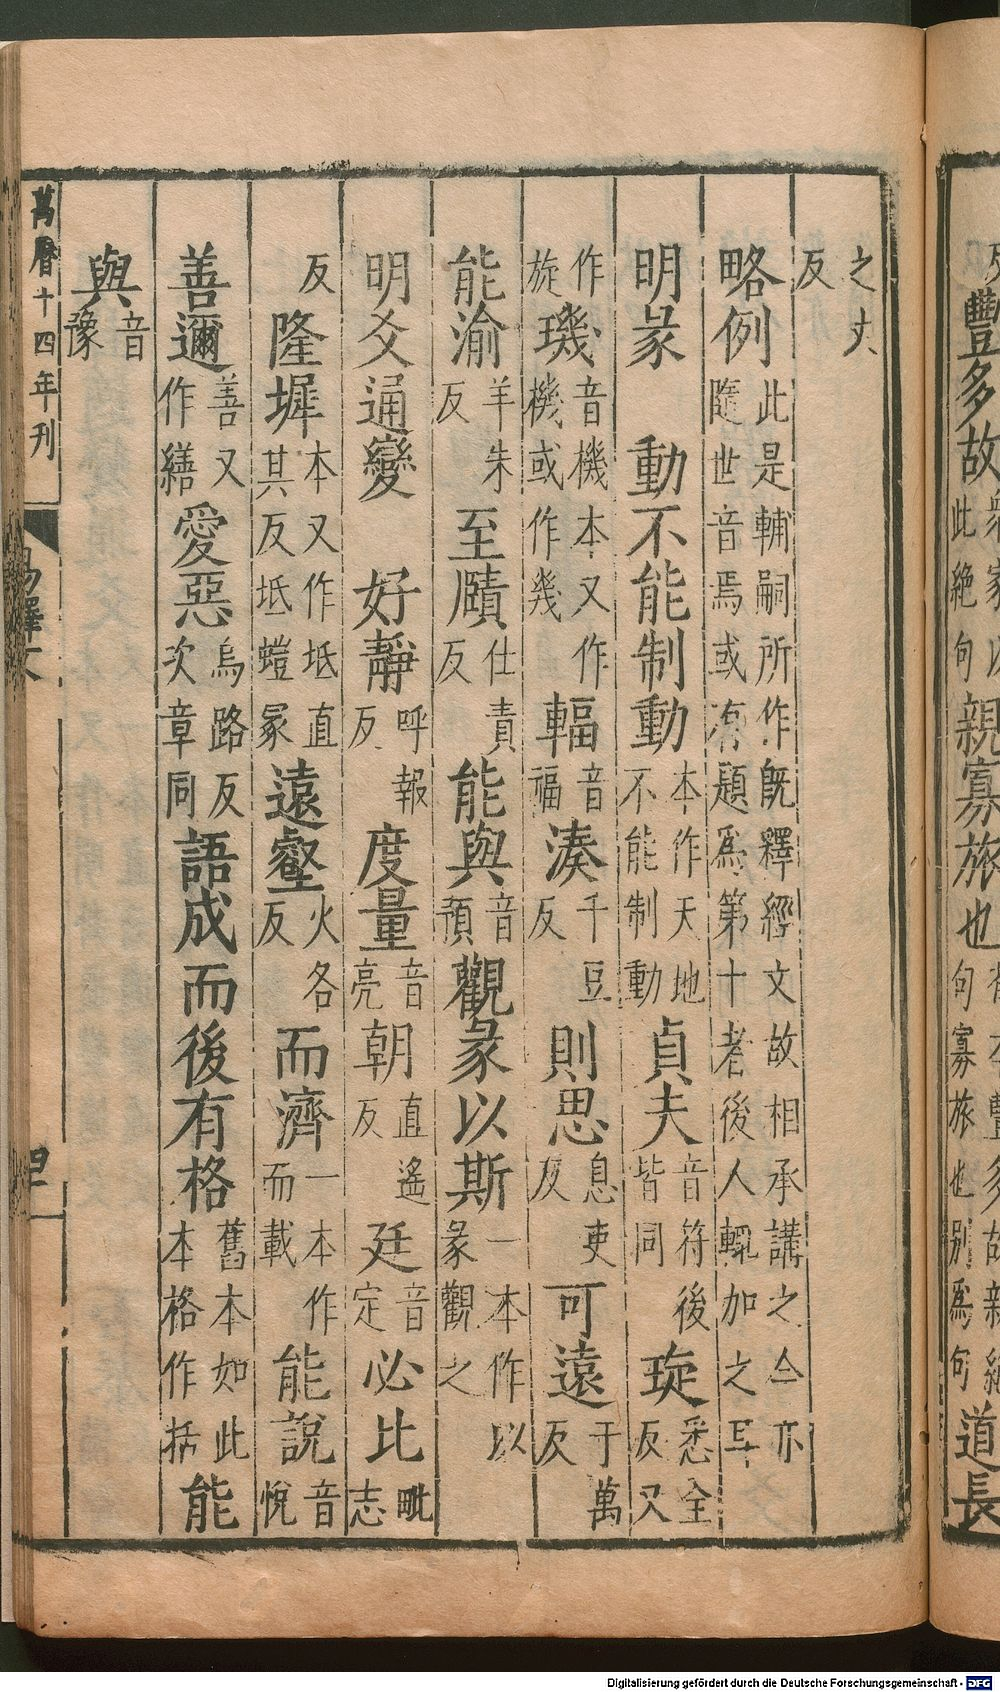 豐多故 此絕句 親寡旅也 句寡旅也別為句 道長
之丈反
略例 此是輔嗣所作既釋經文故相承講之今亦隨世音焉或有題為第十者後人輒加之耳
明彖 動不能制動 本作天地不能制動 貞夫 音符後皆同 琁 悉全反又
作旋 璣 音機本又作機或作幾 輻 音福 湊 千豆反 則思 息吏反 可遠 于萬反
能渝 羊朱反 至賾 仕責反 能與 音預 觀彖以斯 一本作以彖觀之
明爻通變 好靜 呼報反 度量 音亮 朝 直遙反 廷 音定 必比 毗志
反 隆墀 本又作坻直其反坻螘冢 遠壑 火各反 而濟 一本作而載 能說 音悅
善邇 善又作繕 愛惡 烏路反次章同 語成而後有格 舊本如此本格作括 能
與 音豫
萬曆十四年刊
易釋文
四
Digitalisierung gefördert durch die Deutsche Forschungsgemeinschaft - DFG